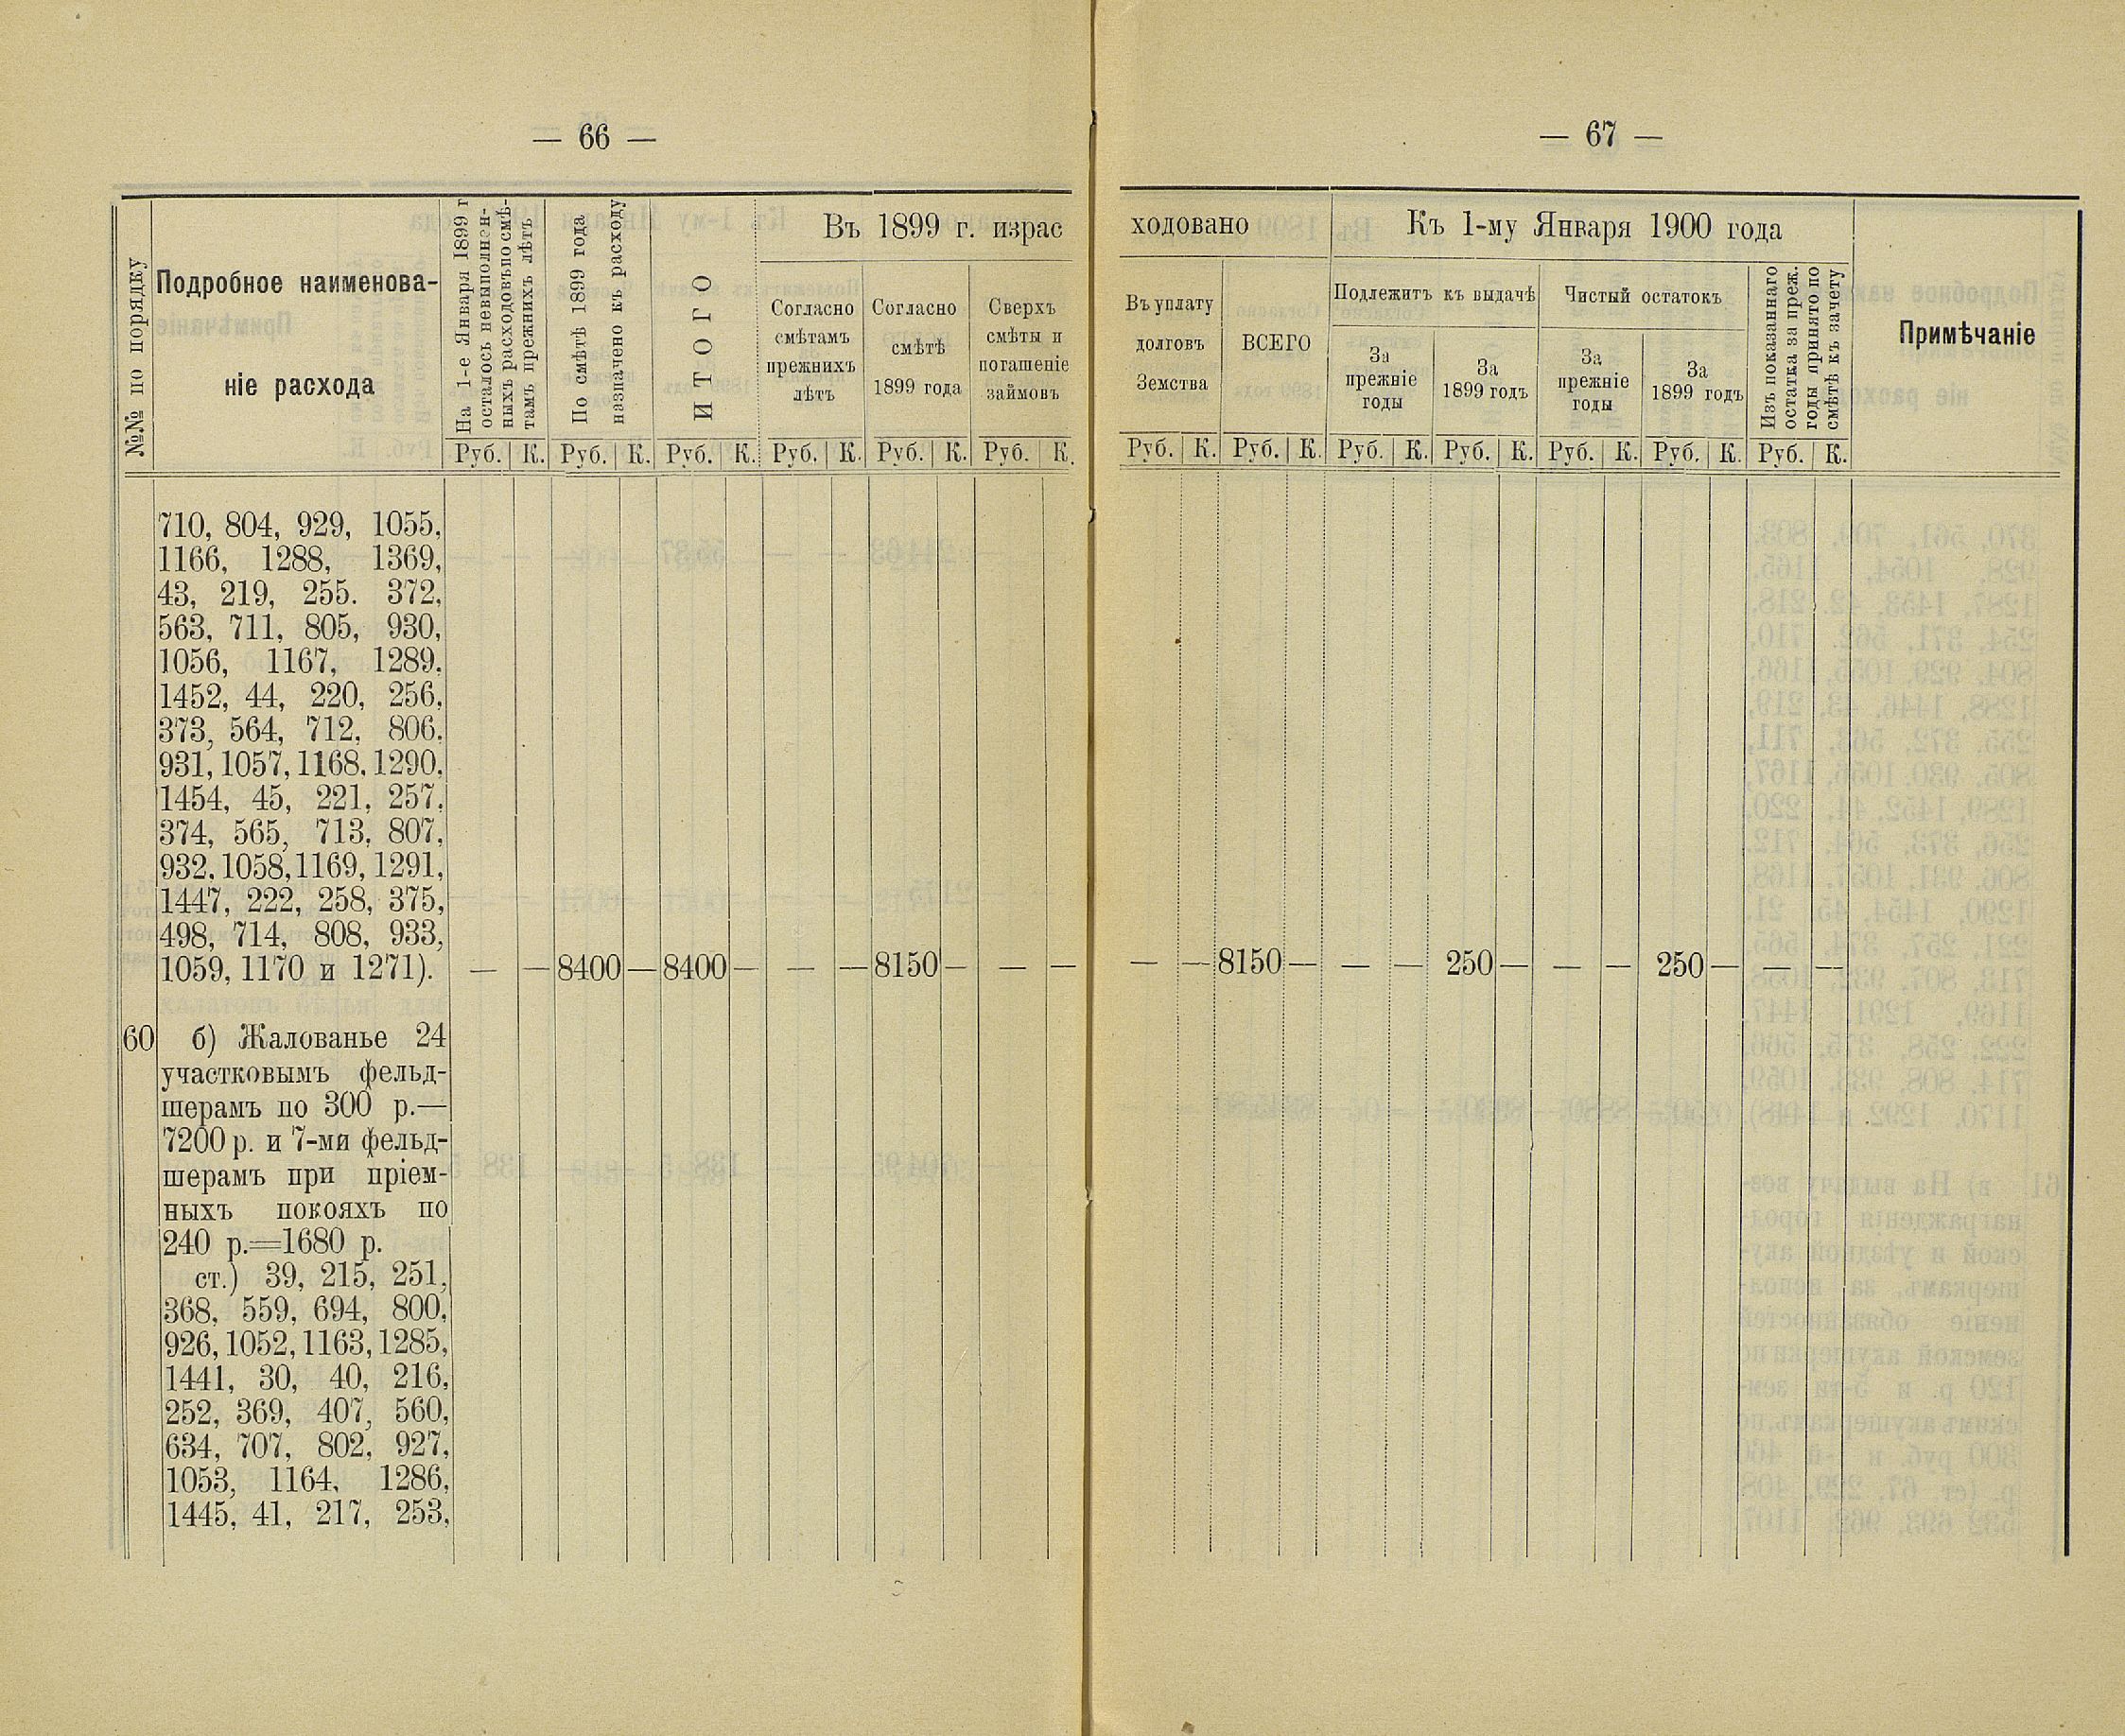 — 66 —
№№ по порядку
Подробное наименова-
ніе расхода
На 1-е Января 1899 г
осталось невыполнен-
ныхъ расходовъ по смѣ-
тамъ прежнихъ лѣтъ
По смѣтѣ 1899 года
назначено къ расходу
ИТОГО
Въ 1899 г. израс
Согласно
смѣтамъ
прежнихъ
лѣтъ
Согласно
смѣтѣ
1899 года
Сверхъ
смѣты и
погашеніе
займовъ
Руб. К. Руб. К. Руб. К. Руб. К. Руб. К. Руб. К.
710, 804, 929, 1055,
1166, 1288, 1369,
43, 219, 255. 372,
563, 711, 805, 930,
1056, 1167, 1289.
1452, 44, 220, 256,
373, 564, 712, 806.
931, 1057, 1168. 1290,
1454, 45, 221, 257.
374, 565, 713, 807,
932, 1058, 1169, 1291,
1447, 222, 258, 375,
498, 714, 808, 933,
1059, 1170 и 1271). — — 8400 — 8400 — — — 8150 — — —
60 б) Жалованье 24
участковымъ фельд-
шерамъ по 300 р.—
7200 р. и 7-ми фельд-
шерамъ при пріем-
ныхъ покояхъ по
240 р.=1680 р.
ст.) 39, 215, 251,
368, 559, 694, 800,
926, 1052, 1163, 1285,
1441, 30, 40, 216,
252, 369, 407, 560,
634, 707, 802, 927,
1053, 1164, 1286,
1445, 41, 217, 253,
— 67 —
ходовано
Въ уплату
долговъ
Земства
ВСЕГО
Къ 1-му Января 1900 года
Подлежитъ къ выдачѣ
За
прежніе
годы
За
1899 годъ
Чистый остатокъ
За
прежніе
годы
За
1899 годъ
Изъ показаннаго
остатка за преж.
годы принято по
смѣтѣ къ зачету
Примѣчаніе
Руб. К. Руб. К. Руб. К. Руб. К. Руб. К. Руб. К. Руб. К.
— — 8150 — — — 250 — — — 250 — — —